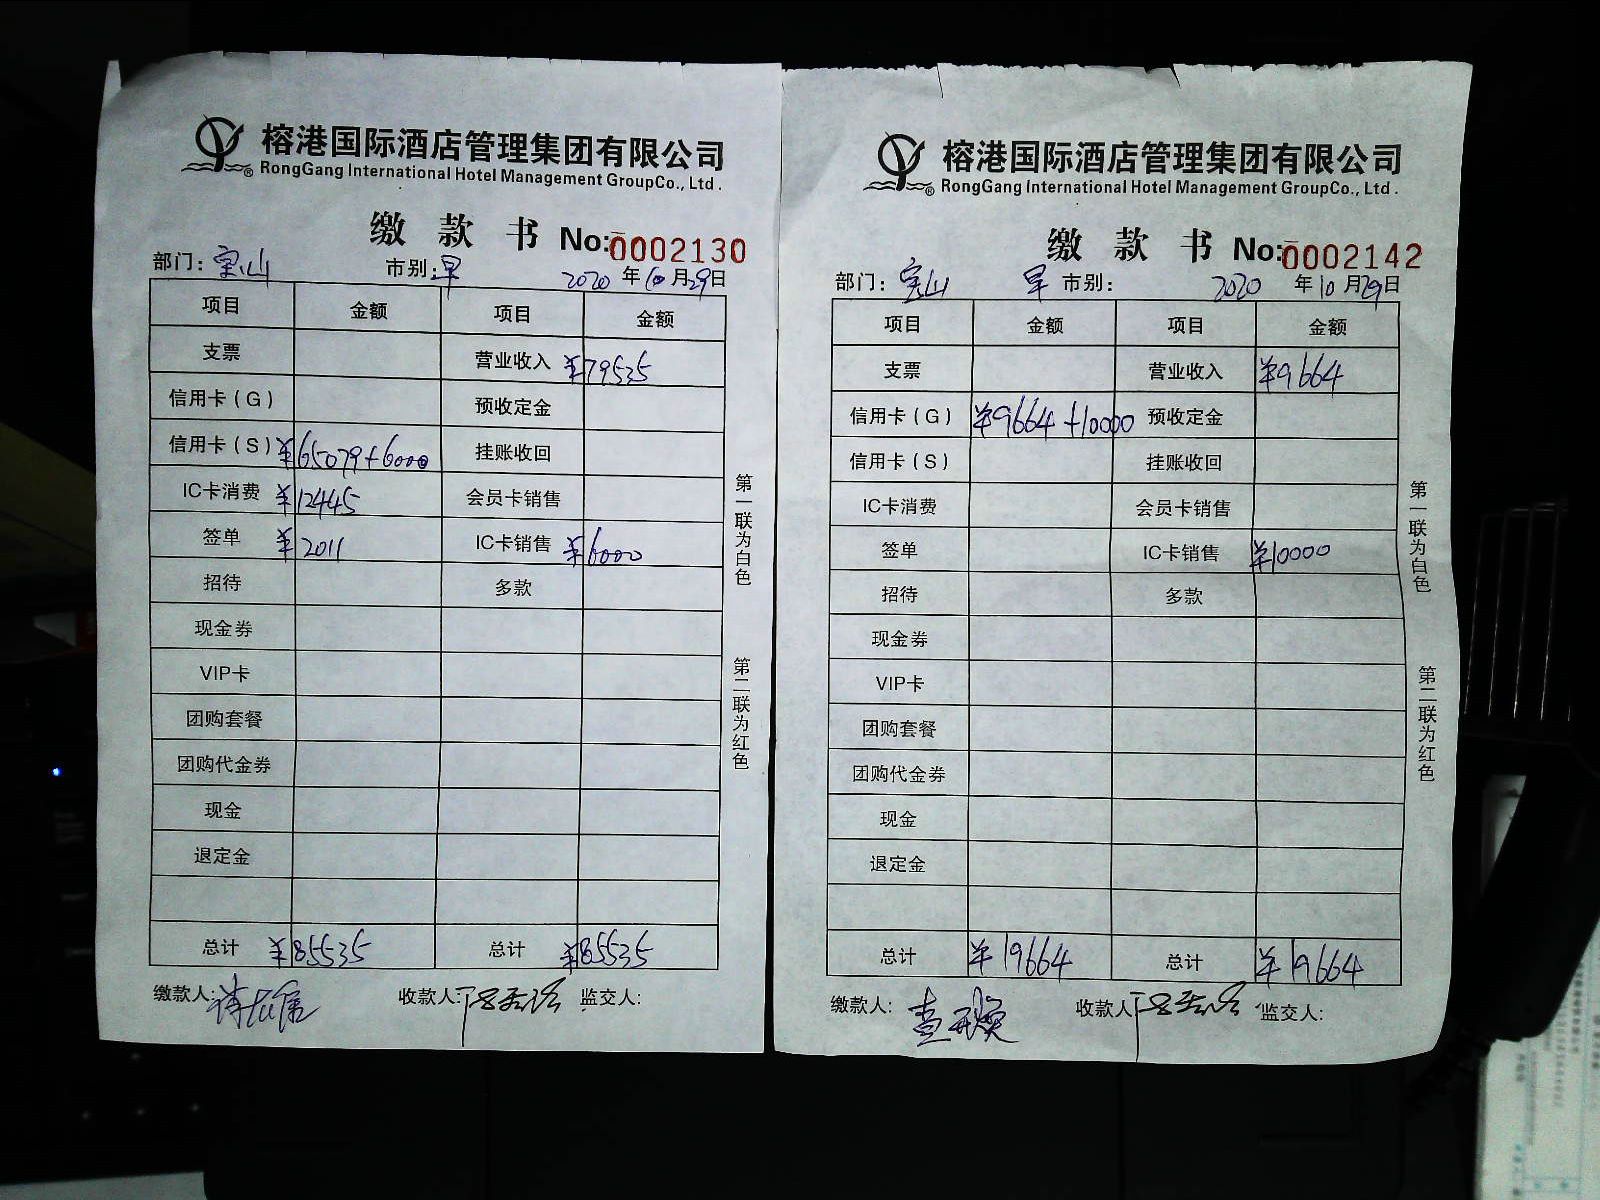 榕港国际酒店管理集团有限公司
RongGang International Hotel Management GroupCo., Ltd.
缴 款 书 No:0002130
部门: 宝山 市别: 早 2020 年 10 月 29 日
项目 金额 项目 金额
支票 营业收入 ¥79535
信用卡(G) 预收定金
信用卡(S) ¥65079+6000 挂账收回
IC卡消费 ¥12445 会员卡销售
签单 ¥2011 IC卡销售 ¥6000
招待 多款
现金券
VIP卡
团购套餐
团购代金券
现金
退定金
总计 ¥85535 总计 ¥85535
缴款人: 收款人: 监交人:
第一联为白色
第二联为红色
榕港国际酒店管理集团有限公司
RongGang International Hotel Management GroupCo., Ltd.
缴 款 书 No:0002142
部门: 宝山 早 市别: 2020 年 10 月 29 日
项目 金额 项目 金额
支票 营业收入 ¥9664
信用卡(G) ¥9664+10000 预收定金
信用卡(S) 挂账收回
IC卡消费 会员卡销售
签单 IC卡销售 ¥10000
招待 多款
现金券
VIP卡
团购套餐
团购代金券
现金
退定金
总计 ¥19664 总计 ¥19664
缴款人: 收款人 监交人:
第一联为白色
第二联为红色